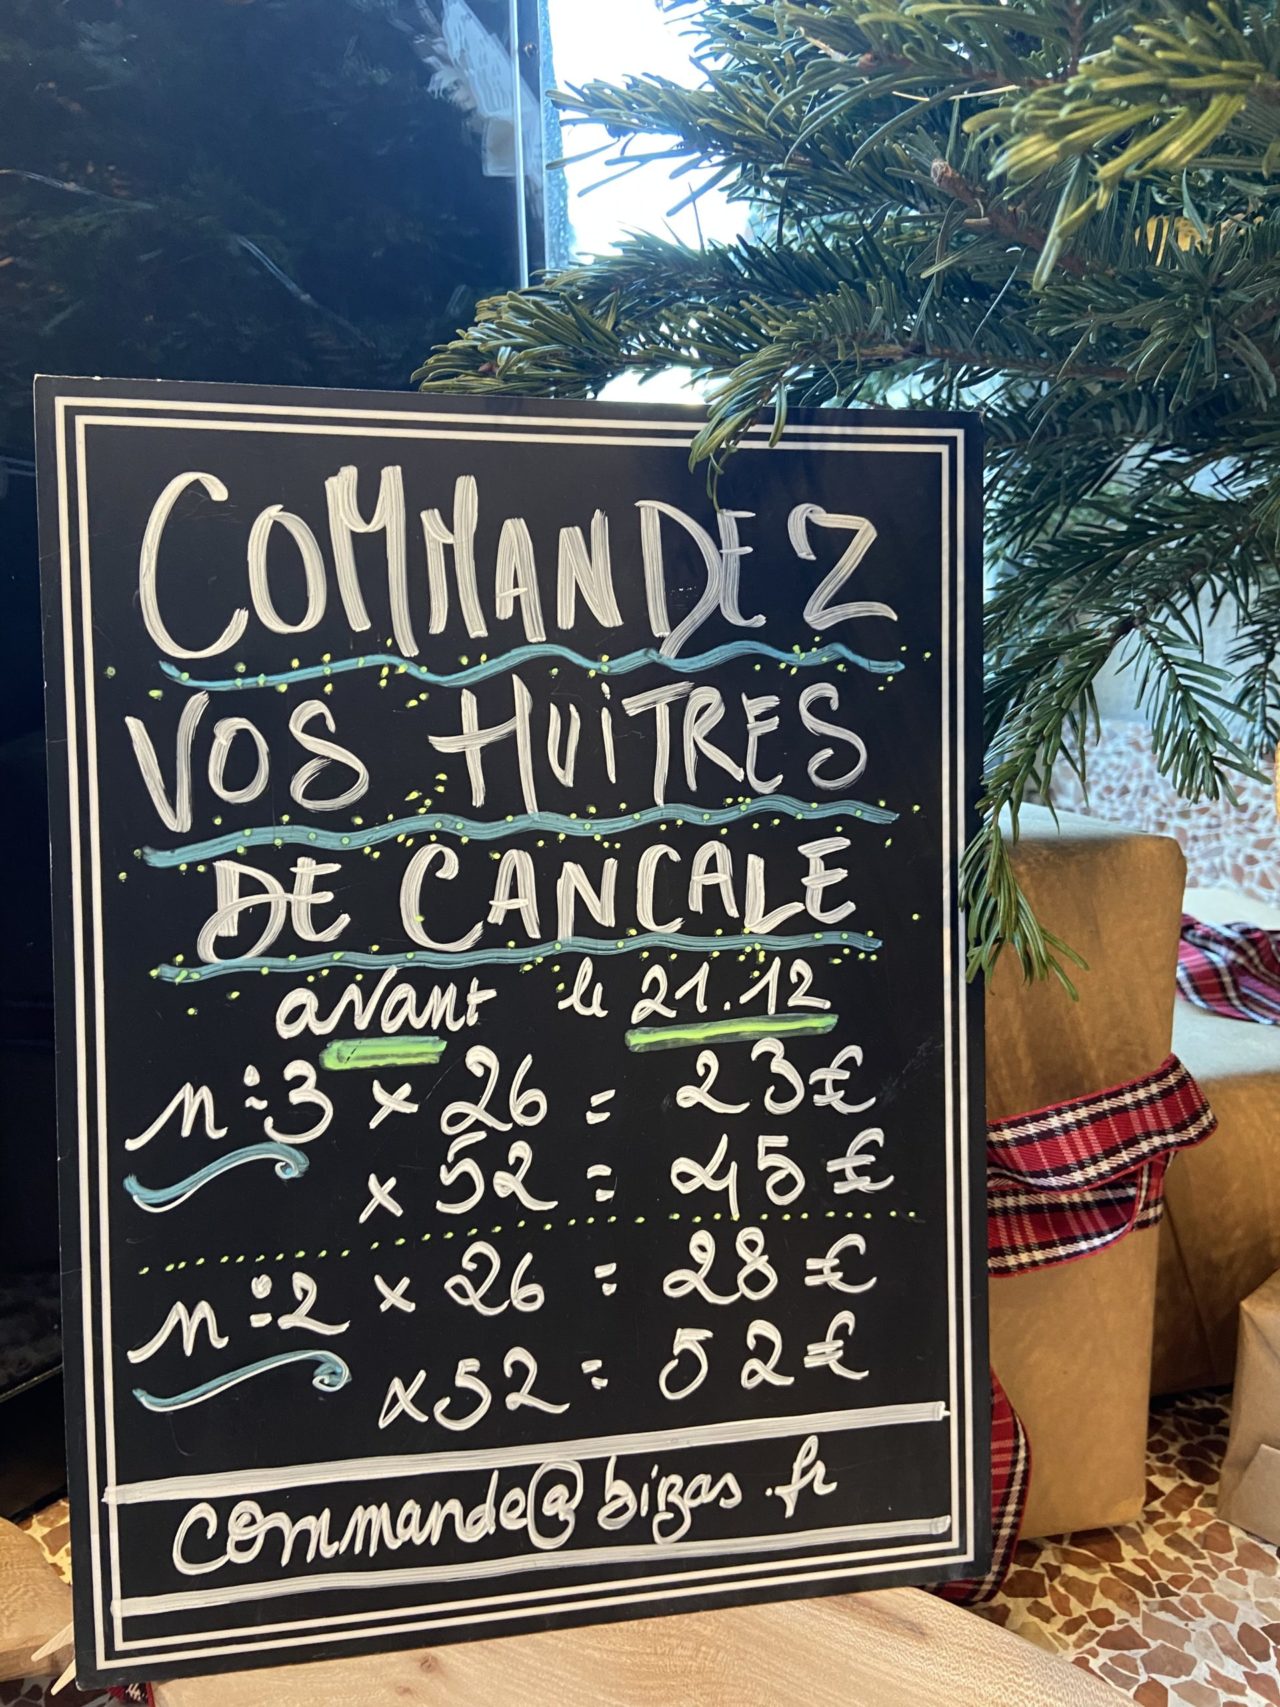 COMMANDEZ
VOS HUiTRES
DE CANCALE
avant le 21.12
n°3 x 26 = 23€
x 52 = 45€
n°2 x 26 = 28€
x52 = 52€
commande@bizas.fr